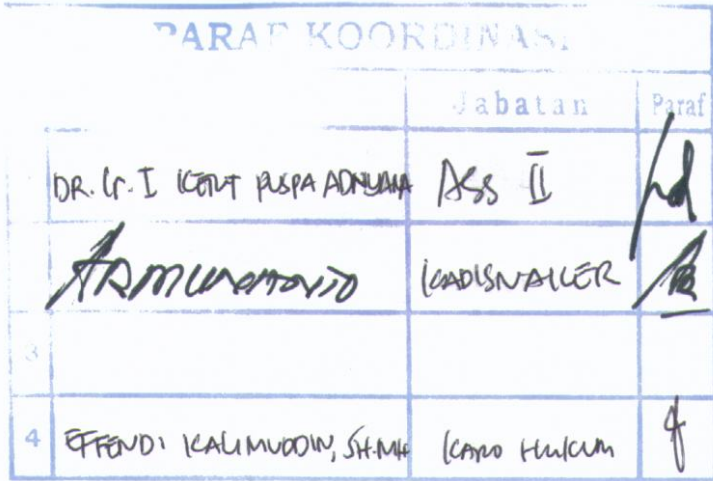 PARAF KOORDINASI
Jabatan Paraf
DR. Ir. I KETUT PUSPA ADNYANA ASS II
KADISNAKER
3
4 EFFENDI KALIMUDDIN, SH.MH KARO HUKUM